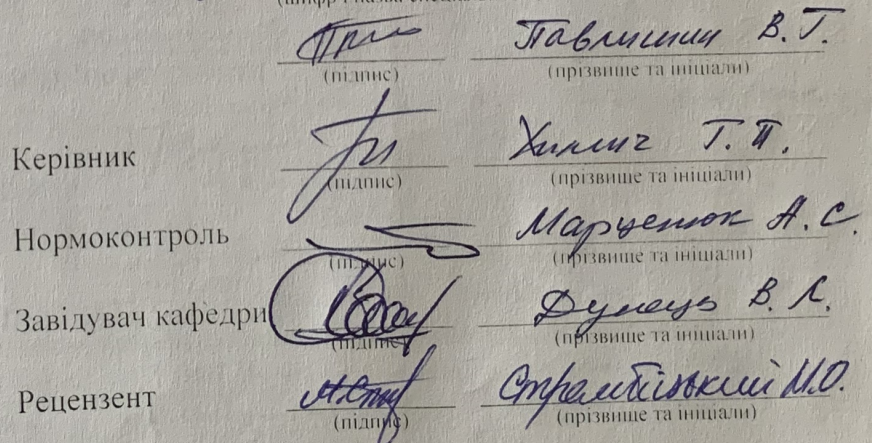 Павлишин В. Г.
(підпис) (прізвище та ініціали)
Керівник Химич Г. П.
(підпис) (прізвище та ініціали)
Нормоконтроль Марценюк А. С.
(підпис) (прізвище та ініціали)
Завідувач кафедри Дунець В. Л.
(підпис) (прізвище та ініціали)
Рецензент Стрембіцький М.О.
(підпис) (прізвище та ініціали)